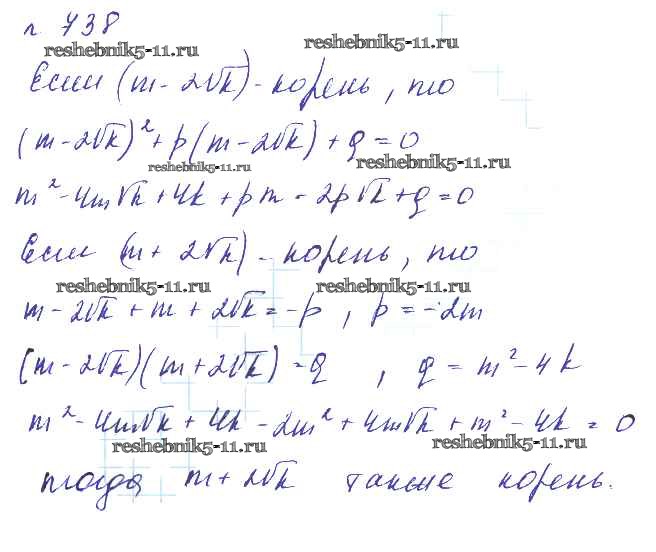 n 738
reshebnik5-11.ru reshebnik5-11.ru
Если (m - 2√k) - корень, то
(m - 2√k)² + p(m - 2√k) + q = 0
reshebnik5-11.ru reshebnik5-11.ru
m² - 4m√k + 4k + pm - 2p√k + q = 0
Если (m + 2√k) - корень, то
reshebnik5-11.ru reshebnik5-11.ru
m - 2√k + m + 2√k = -p, p = -2m
(m - 2√k)(m + 2√k) = q, q = m² - 4k
m² - 4m√k + 4k - 2m² + 4m√k + m² - 4k = 0
reshebnik5-11.ru reshebnik5-11.ru
тогда m + 2√k также корень.